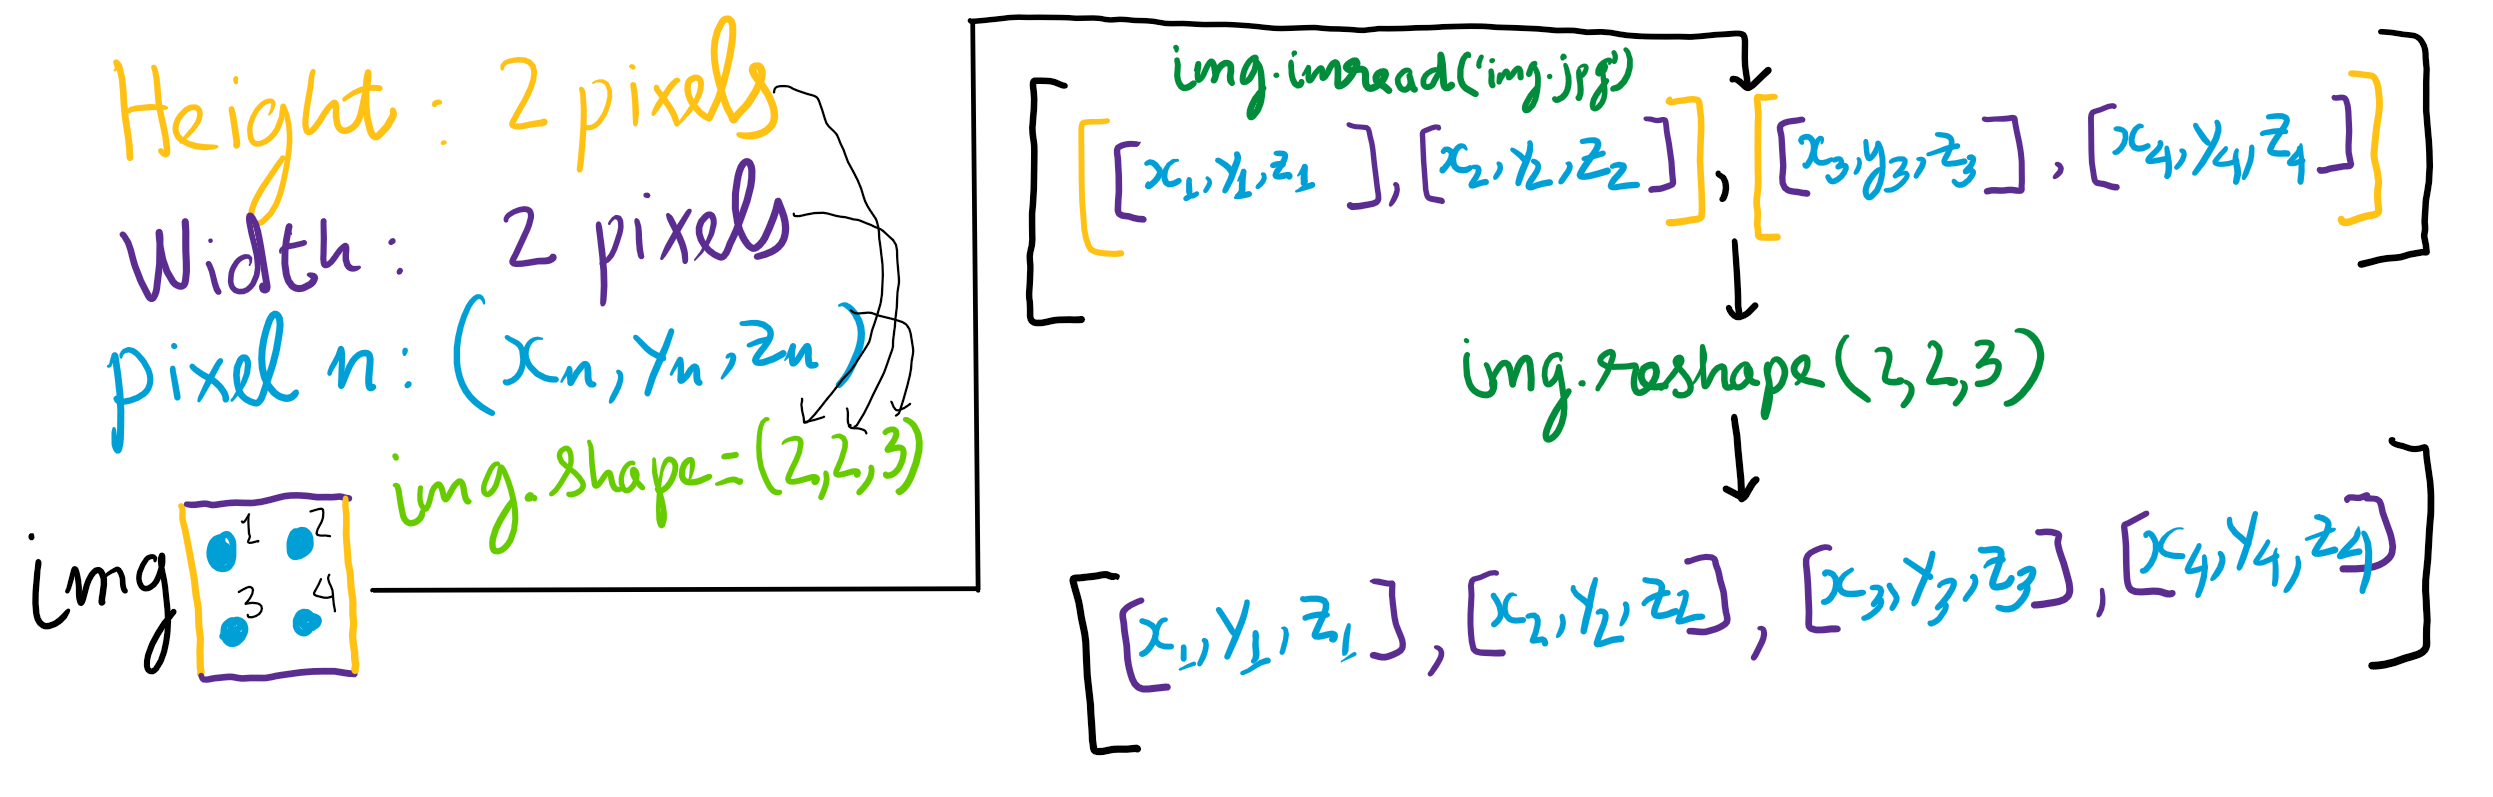 Height: 2 pixels
Width: 2 pixels
pixel n: (xn, yn, zn)
img.shape=(2,2,3)
img
1 2
3 4
img.imread('img.jpg')
[[[x1,y1,z1],[x2,y2,z2]],[[x3,y3,z3],[x4,y4,z4]]]
img.reshape(2*2,3)
[[x1,y1,z1],[x2,y2,z2],[x3,y3,z3],[x4,y4,z4]]